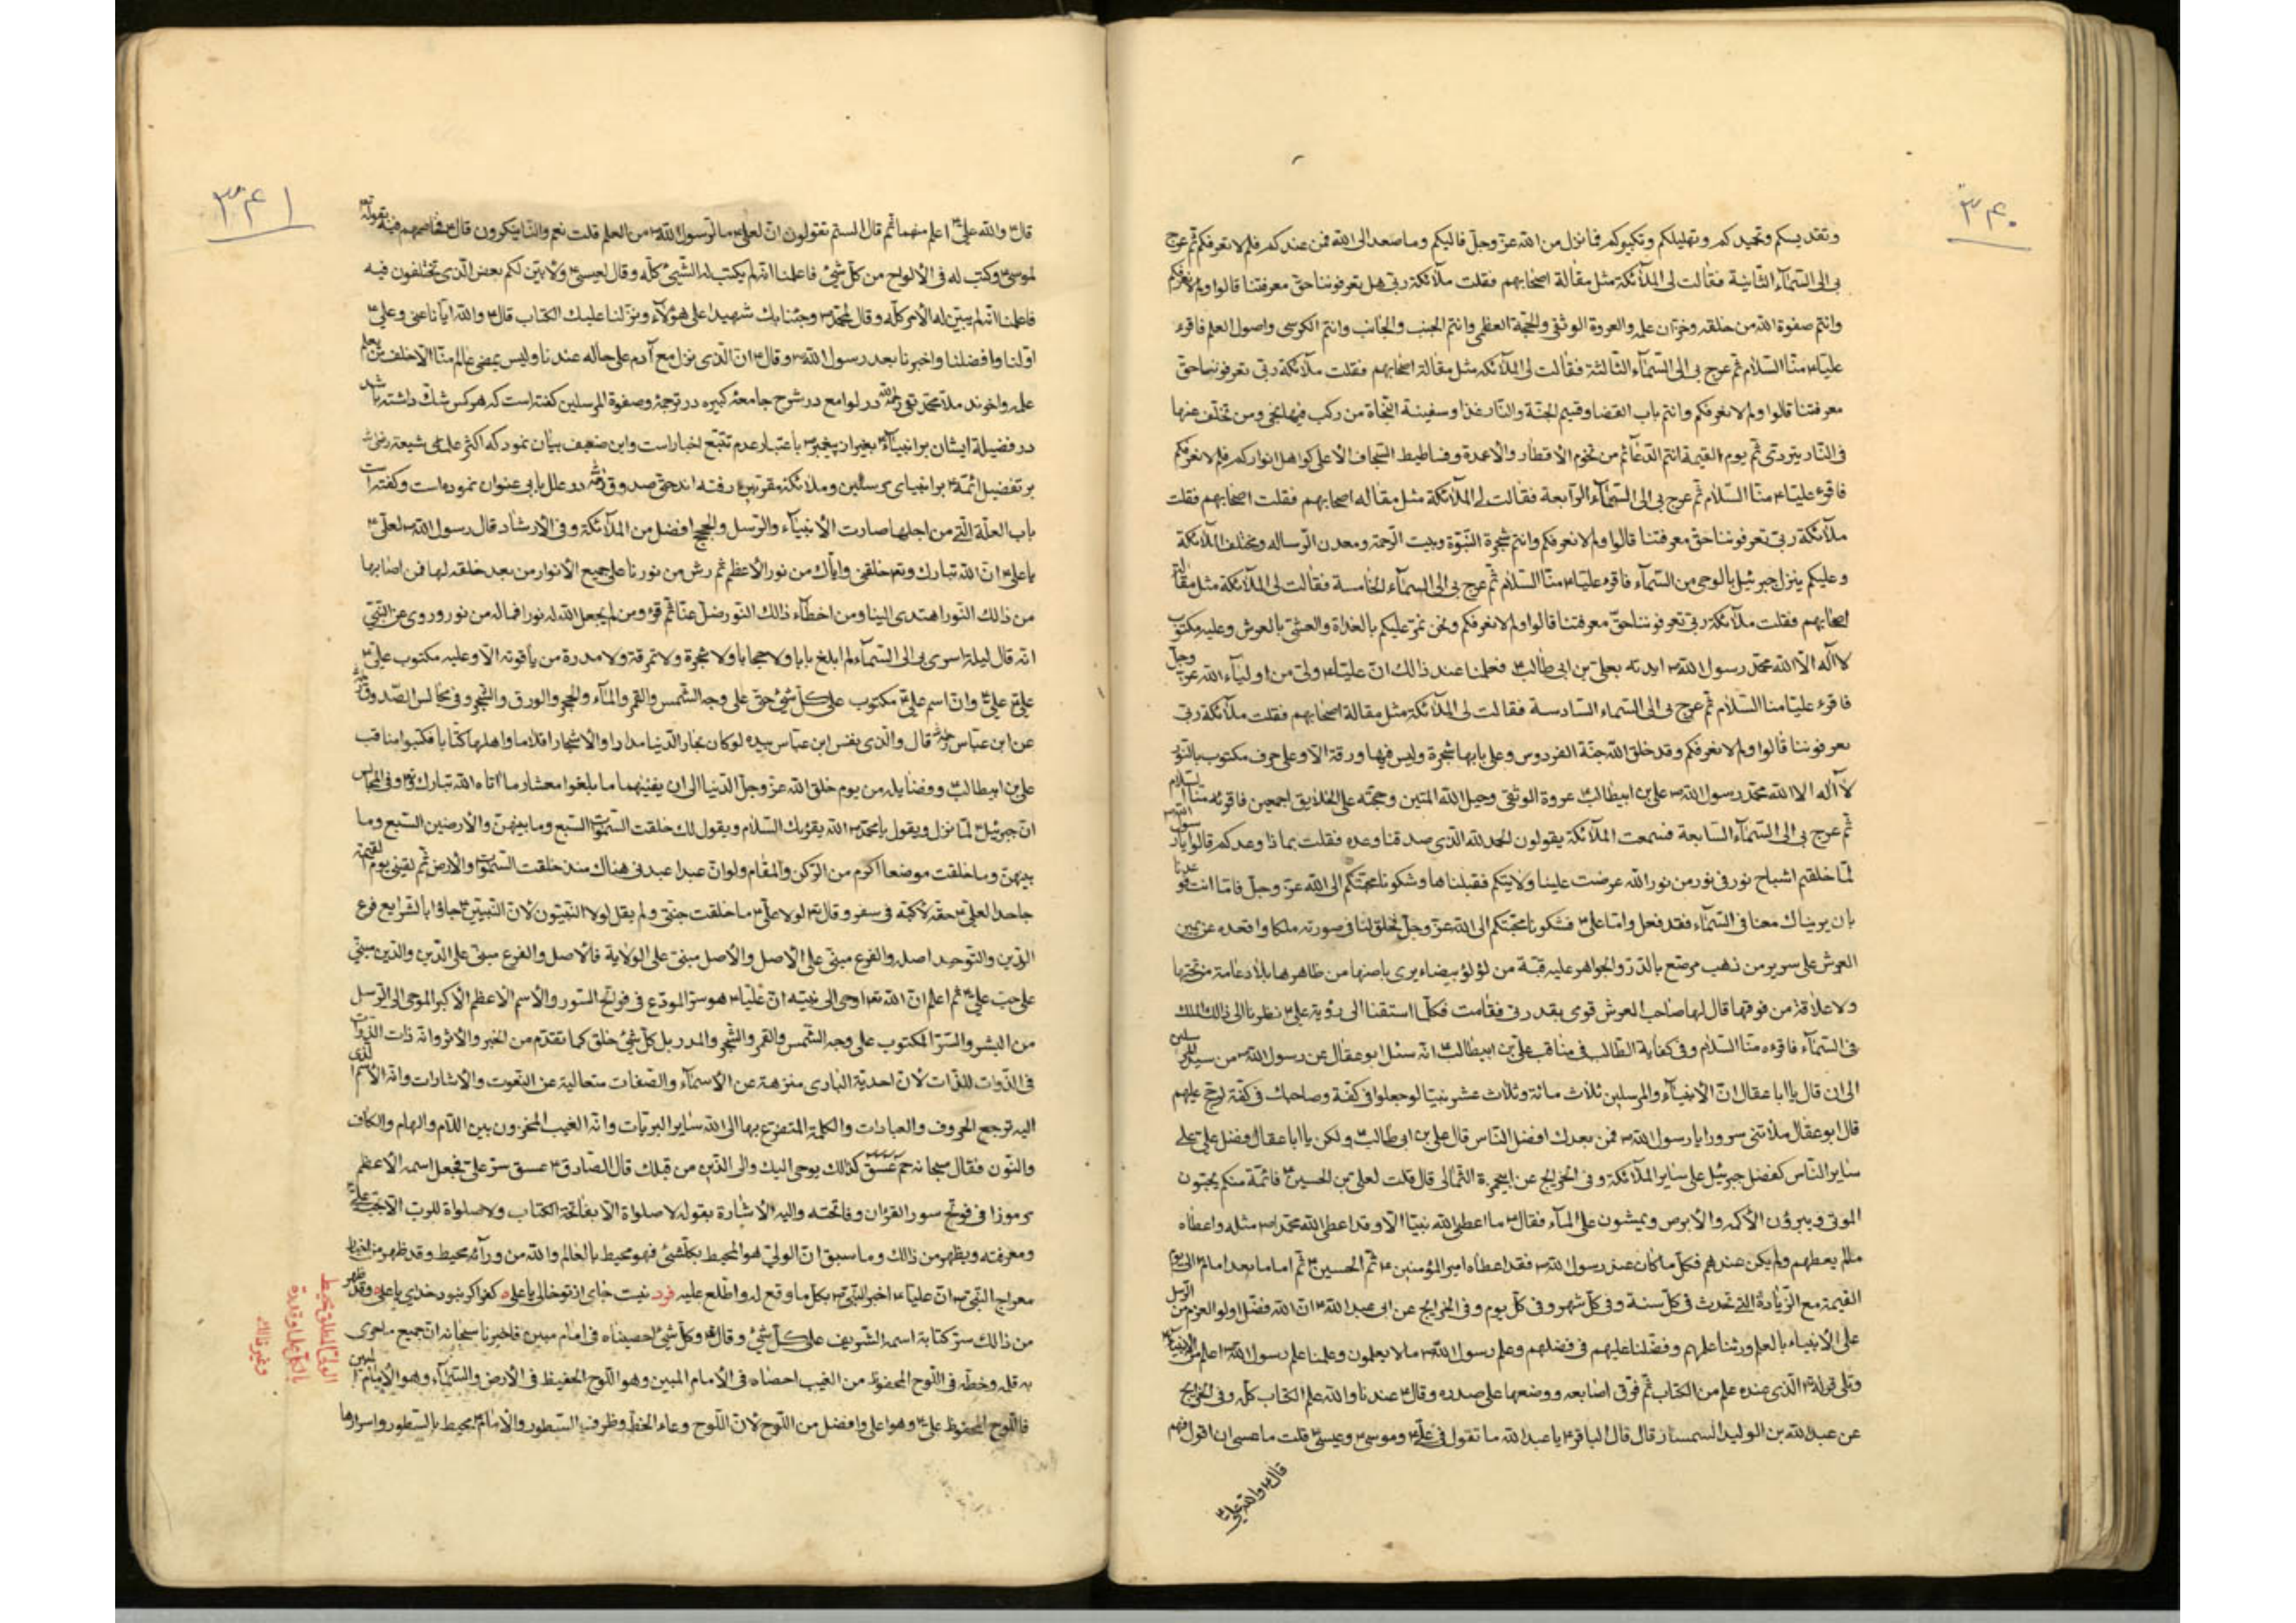 ۳۴۰
وتقديسكم وتمجيدكم وتهليلكم وتكبيركم فما نزل من الله عز وجل فاليكم وما صعد الى الله فمن عندكم فلم لا نعرفكم ثم عرج
بى الى السمآء الثانية فقالت لى الملآئكة مثل مقالة اصحابهم فقلت ملآئكة ربى هل تعرفوننا حق معرفتنا قالوا ولم لا نعرفكم
وانتم صفوة الله من خلقه وخزان علمه والعروة الوثقى والحجة العظمى وانتم الجنب والجانب وانتم الكرسى واصول العلم فاقرء
عليا۴ منا السلام ثم عرج بى الى السمآء الثالثة فقالت لى الملآئكة مثل مقالة اصحابهم فقلت ملآئكة ربى تعرفوننا حق
معرفتنا قالوا ولم لا نعرفكم وانتم باب القضا وقسيم الجنة والنار غدا وسفينة النجاة من ركب فيها نجى ومن تخلف عنها
فى النار يتردى ثم يوم القيمة انتم الدعآئم من تخوم الاقطار والاعمدة وفساطيط السجاف الأعلى كواهل انواركم فلم لا نعرفكم
فاقرء عليا۴ منا السلام ثم عرج بى الى السمآء الرابعة فقالت لى الملآئكة مثل مقاله اصحابهم فقلت اصحابهم فقلت
ملآئكة ربى تعرفوننا حق معرفتنا قالوا ولم لا نعرفكم وانتم شجرة النبوة وبيت الرحمة ومعدن الرساله ومختلف الملآئكة
وعليكم ينزل جبرئيل بالوحى من السمآء فاقرء عليا۴ منا السلام ثم عرج بى الى السمآء الخامسة فقالت لى الملآئكة مثل مقالة
اصحابهم فقلت ملآئكة ربى تعرفوننا حق معرفتنا قالوا ولم لا نعرفكم ونحن نمر عليكم بالغداة والعشى بالعرش وعليه مكتوب
لا اله الا الله محمد رسول الله ايدته بعلى بن ابى طالب فعلمنا عند ذالك ان عليا۴ ولى من اوليآء الله عز وجل
فاقرء عليا منا السلام ثم عرج بى الى السمآء السادسة فقالت لى الملآئكة مثل مقالة اصحابهم فقلت ملآئكة ربى
تعرفوننا قالوا ولم لا نعرفكم وقد خلق الله جنة الفردوس وعلى بابها شجرة وليس فيها ورقة الا وعلى حرف مكتوب بالنور
لا اله الا الله محمد رسول الله على بن ابيطالب عروة الوثقى وحبل الله المتين وحجته على الخلايق اجمعين فاقرئه منا السلام
ثم عرج بى الى السمآء السابعة فسمعت الملآئكة يقولون الحمد لله الذى صدقنا وعده فقلت بما ذا وعدكم قالوا يا رسول الله
لما خلقتم اشباح نور فى نور من نور الله عرضت علينا ولايتكم فقبلناها وشكونا محبتكم الى الله عز وجل فاما انت فوعدنا
بان يريناك معنا فى السمآء فقد فعل واما على فشكونا محبتكم الى الله عز وجل فخلق لنا فى صورته ملكا واقعده عن يمين
العرش على سرير من ذهب مرصع بالدر والجواهر عليه قبة من لؤلؤ بيضاء يرى باطنها من ظاهرها بلا دعامة من تحتها
ولا علاقة من فوقها قال لها صاحب العرش قومى بقدرتى فقامت فكلما اشتقنا الى رؤية على نظرنا الى ذالك الملك
فى السمآء فاقرءه منا السلام وفى كفاية الطالب فى مناقب على بن ابيطالب انه سئل ابو عقال عن رسول الله من سيد المرسلين
الى ان قال يا ابا عقال ان الانبيآء والمرسلين ثلاث مائة وثلاث عشر نبيا لو جعلوا فى كفة وصاحبك فى كفة لرجح عليهم
قال ابو عقال ملأتنى سرورا يا رسول الله فمن بعدك افضل الناس قال على بن ابى طالب ولكن يا ابا عقال فضل على على
ساير الناس كفضل جبرئيل على ساير الملآئكة وفى الخرايج عن ابى حمزة الثمالى قال قلت لعلى بن الحسين فائمة منكم يحيون
الموتى ويبرؤن الأكمه والابرص ويمشون على المآء فقال ما اعطى الله نبيا الا وقد اعطى الله محمدا مثله واعطاه
ما لم يعطهم ولم يكن عندهم فكل ما كان عند رسول الله فقد اعطاه امير المؤمنين ثم الحسين ثم اماما بعد امام الى يوم
القيمة مع الزيادة التى تحدث فى كل سنة وفى كل شهر وفى كل يوم وفى الخرايج عن ابى عبد الله ان الله فضل اولو العزم من الرسل
على الانبياء بالعلم وورثنا علمهم وفضلنا عليهم فى فضلهم وعلم رسول الله ما لا يعلمون وعلمنا علم رسول الله اعلم من الانبيآء
وتلى قوله الذى عنده علم من الكتاب ثم فرق اصابعه ووضعها على صدره وقال عندنا والله علم الكتاب كله وفى الخرايج
عن عبد الله بن الوليد السمسار قال قال الباقر يا عبد الله ما تقول فى على وموسى وعيسى قلت ما عسى ان اقول فيهم
قال والله على
۳۴۱
قال والله على اعلم منهما ثم قال الستم تقولون ان لعلى ما لرسول الله من العلم قلت نعم والناس ينكرون قال فخاصمهم فيه بقوله
لموسى وكتب له فى الألواح من كل شئ فاعلمنا انه لم يكتب له الشيئ كله وقال لعيسى ولابين لكم بعض الذى تختلفون فيه
فاعلمنا انه لم يبين له الأمر كله وقال لمحمد وجئنا بك شهيدا على هؤلآء ونزلنا عليك الكتاب قال والله ايانا عنى وعلى
اولنا وافضلنا واخيرنا بعد رسول الله وقال ان الذى نزل مع آدم على حاله عندنا وليس يمضى عالم منا الا خلف من يعلم
علمه واخوند ملا محمد تقى در لوامع در شرح جامعه كبيره در ترجمه وصفوة المرسلين گفته است كه هركس شك داشته باشد
در فضيلة ايشان بر انبيآء بغير از پيغمبر باعتبار عدم تتبع اخبار است واين ضعيف بيان نمود كه اكثر علماى شيعه
بر تفضيل ائمة بر انبياى مرسلين وملائكه مقربين رفته اند حتى صدوق در علل بابى عنوان نموده است وگفته است
باب العلة التى من اجلها صارت الأنبيآء والرسل والحجج افضل من الملآئكة وفى الارشاد قال رسول الله لعلى
يا على ان الله تبارك وتع خلقنى واياك من نور الأعظم ثم رش من نورنا على جميع الانوار من بعد خلقه لها فمن اصابها
من ذالك النور اهتدى الينا ومن اخطآء ذالك النور ضل عنا ثم قرء ومن لم يجعل الله له نورا فما له من نور وروى عن النبى
انه قال ليلة اسرى بى الى السمآء لم ابلغ بابا ولا حجابا ولا شجرة ولا ثمرة ولا مدرة من ياقوته الا وعليه مكتوب على
على على وان اسم على مكتوب على كل شئ حق على وجه الشمس والقمر والمآء والحجر والورق والشجر وفى مجالس الصدوق
عن ابن عباس قال والذى نفس ابن عباس بيده لو كان بحار الدنيا مدادا والاشجار اقلاما واهلها كتابا فكتبوا مناقب
على بن ابيطالب وفضايله من يوم خلق الله عز وجل الدنيا الى ان يفنيهما ما بلغوا معشار ما اتاه الله تبارك وفى المجالس
ان جبرئيل لما نزل ويقول يا محمد الله يقرئك السلام ويقول لك خلقت السموات السبع وما بينهن والأرضين السبع وما
بينهن وما خلقت موضعا اكرم من الركن والمقام ولو ان عبدا عبدنى هناك منذ خلقت السموات والارض ثم لقينى يوم القيمة
جاحدا لعلى حقه لأكبه فى سقر وقال لولا على ما خلقت جنتى ولم يقل لولا النبيون لان النبيين جاؤا بالشرايع فرع
الدين والتوحيد اصله والفرع مبنى على الأصل والأصل مبنى على الولاية فالأصل والفرع مبنى على الدين والدين مبنى
على حب على ثم اعلم ان الله تع اوحى الى نبيه ان عليا هو سر المودع فى فواتح السور والأسم الأعظم الأكبر الموحى الى الرسل
من البشر والسر المكتوب على وجه الشمس والقمر والشجر والمدر بل كل شئ خلق كما تقدم من الخبر والاثر وانه ذات الذوات
فى الذوات للذات لأن احدية البارى منزهة عن الأسمآء والصفات متعالية عن النعوت والأشارات وانه الأسم الذى
اليه ترجع الحروف والعبادات والكلمة المتضرع بها الى الله ساير البريات وانه الغيب المخزون بين اللام والهام والكاف
والنون فقال سبحانه حم عسق كذالك يوحى اليك والى الذين من قبلك قال الصادق عسق سر على فجعل اسمه الأعظم
مرموزا فى فوتح سور القرآن وفاتحته واليه الأشارة بقوله لا صلواة الا بفاتحة الكتاب ولا صلواة للرب الا بحب على
ومعرفته ويظهر من ذالك وما سبق ان الولي هو المحيط بكلشئ فهو محيط بالعالم والله من ورآئه محيط وقد ظهر من اخبار
معراج النبى ان عليا اخبر النبى بكل ما وقع له واطلع عليه فرد نيست جاى از تو خالى يا على كفر اگر نبود خداى يا على وقد ظهر
من ذالك سر كتابة اسمه الشريف على كل شئ وقال وكل شئ احصيناه فى امام مبين فاخبرنا سبحانه ان جميع ما جرى
به قلمه وخطه فى اللوح المحفوظ من الغيب احصاه فى الأمام المبين وهو اللوح الحفيظ فى الأرض والسمآء وهو الأمام المبين
فاللوح المحفوظ على وهو اعلى وافضل من اللوح لأن اللوح وعاء الخط وظرف السطور والأمام محيط بالسطور واسرارها
الولى المطلق محيط
بالكل علما وقدرة
وغير ذالك